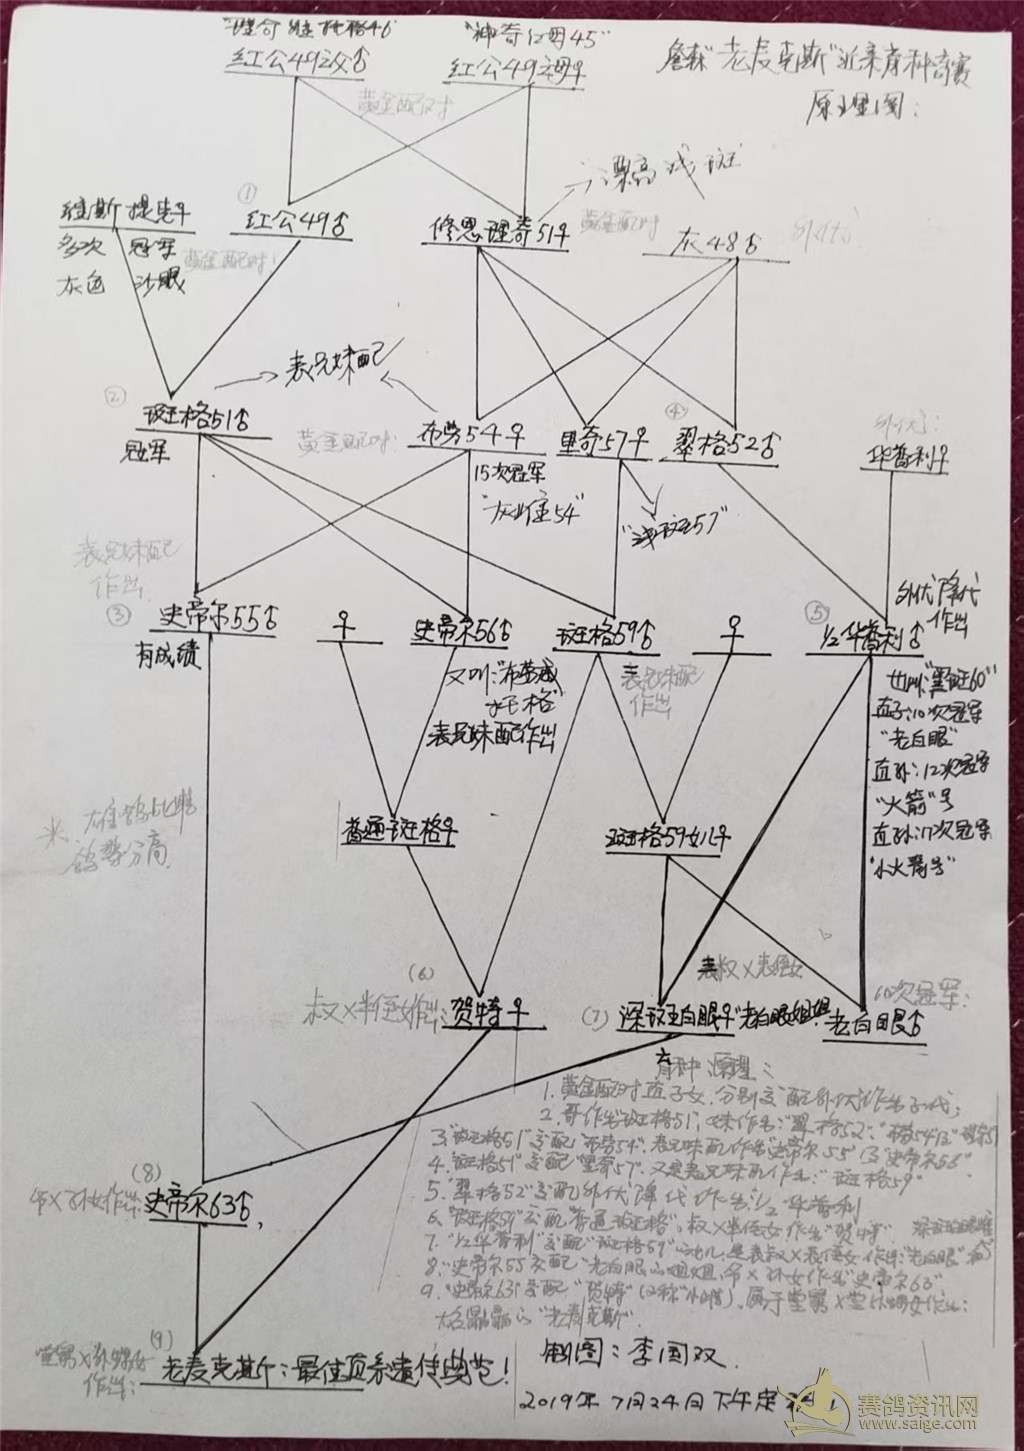 "神奇红母45"
红公49父♂
红公49母♀
詹森"老麦克斯"近亲育种奇赛
原理图：
黄金配对
①
维斯提先♀
多次 冠军
灰色 沙眼
红公49♂
修思理奇51♀
黄金配对
灰48♂
外代
黄金配对!
表兄妹配
②
斑格51♂
冠军
黄金配对:
布劳54♀
15次冠军
"灰雌54"
里奇57♀
"浅斑57"
④
翠格52♂
外代:
华普利♀
表兄妹配
作出
③
史帝尔55♂
有成绩
♀
史帝尔56♂
表兄妹配作出
斑格59♂
表兄妹配
作出
♀
⑤
½华普利♂
外代降代
作出
也叫"黑斑60"
直子:10次冠军
"老白眼"
直孙:12次冠军
"火箭"号
直孙:17次冠军
"小火箭号"
普通斑格♀
斑格59女儿♀
表叔×表侄女
(6)
叔×半侄女作出:贺特♀
(7)
深斑白眼♀"老白眼姐姐"
10次冠军:
老白眼♂
育种原理:
1.黄金配对直子女.分别交配外代作出子代;
2.哥作出"斑格51";妹作出:"翠格52".
3."斑格51"交配"布劳54".表兄妹配作出"史帝尔55"和"史帝尔56"
4."斑格51"交配"里奇57".又是表兄妹配作出:"斑格59"
5."翠格52"交配外代降代作出:½华普利
6."斑格59"交配"普通斑格".叔×半侄女作出"贺特"
7."½华普利"交配"斑格59"女儿.是表叔×表侄女作出:"老白眼"
8."史帝尔55交配"老白眼"姐姐.爷×孙女作出"史帝尔63"
9."史帝尔63"交配"贺特"
大名鼎鼎的"老麦克斯".
(8)
爷×孙女作出:史帝尔63♂
(9)
作出:
老麦克斯:最佳近亲遗传典范!
制图:李国双.
2019年7月24日下午定稿
赛鸽资讯网
www.saige.com